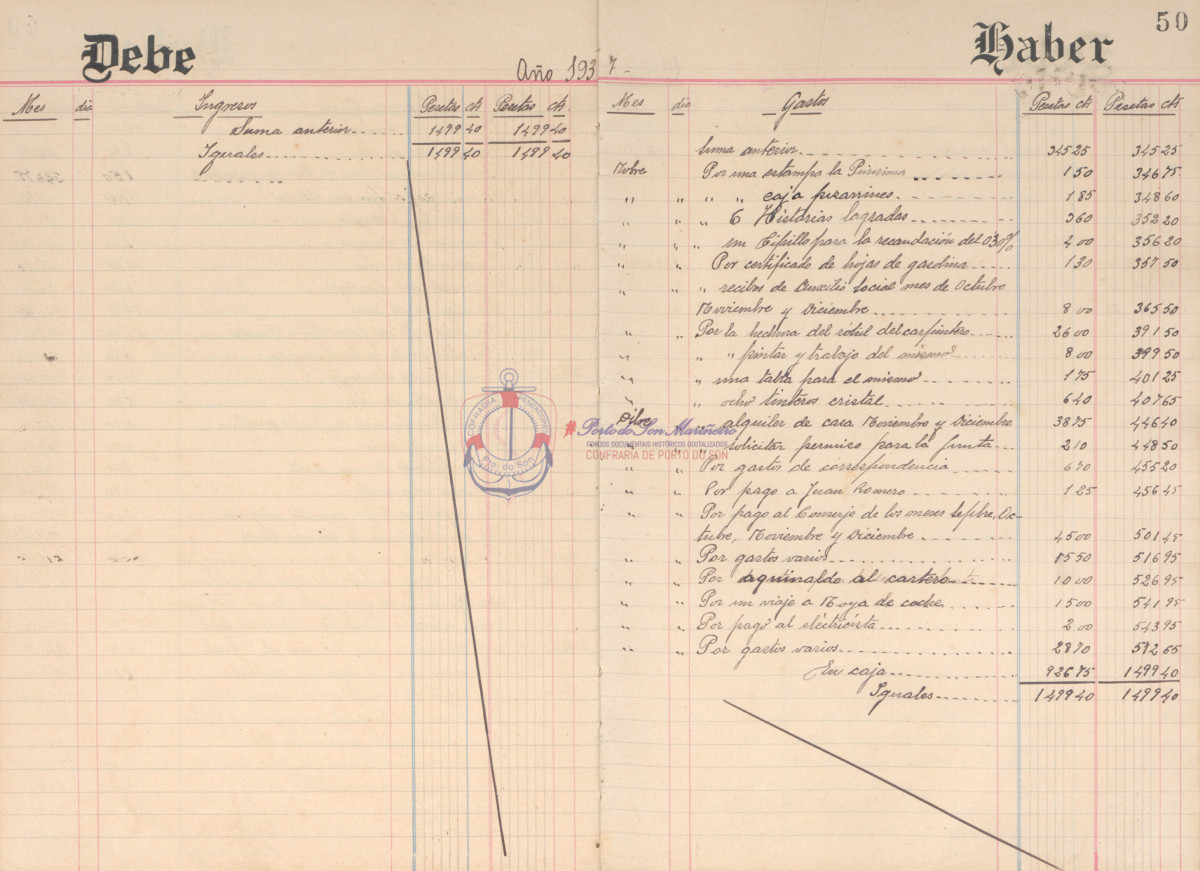 50
Debe
Haber
Año 1937-
Mes dia Ingresos Pesetas cts Pesetas cts
Suma anterior 1499 40 1499 40
Iguales 1499 40 1499 40
Mes dia Gastos Pesetas cts Pesetas cts
Suma anterior 345 25 345 25
Nobre Por una estampa la Purisima 1 50 346 75
" " " " caja pizarrines 1 85 348 60
" " " 6 Historias Sagradas 3 60 352 20
" " " un para la recaudación del 0'30% 4 00 356 20
" " Por certificado de hojas de gasolina 1 30 357 50
" " " recibos de Auxilio Social mes de Octubre
Noviembre y Diciembre 8 00 365 50
" " Por la hechura del rótul del carpintero 26 00 391 50
" " " pintar y trabajo del mismo 8 00 399 50
" " una tabla para el mismo 1 75 401 25
" " ocho tinteros cristal 6 40 407 65
Dibre alquiler de casa Noviembre y Diciembre 38 75 446 40
solicitar permiso para la junta 2 10 448 50
" " Por gastos de correspondencia 6 70 455 20
" " Por pago a Juan Romero 1 25 456 45
" " Por pago al Conserje de los meses Sepbre, Oc-
tubre, Noviembre y Diciembre 45 00 501 45
" " Por gastos varios 15 50 516 95
" " Por aguinaldo al cartero 10 00 526 95
" " Por un viaje a Noya de coche 15 00 541 95
" " Por pago al eléctricista 2 00 543 95
" " Por gastos varios 28 70 572 65
En caja 926 75 1499 40
Iguales 1499 40 1499 40
COFRADIA PESCADORES
Pto. do Son
#PortodoSonMariñeiro
FONDOS DOCUMENTAIS HISTÓRICOS DIGITALIZADOS
CONFRARIA DE PORTO DO SON